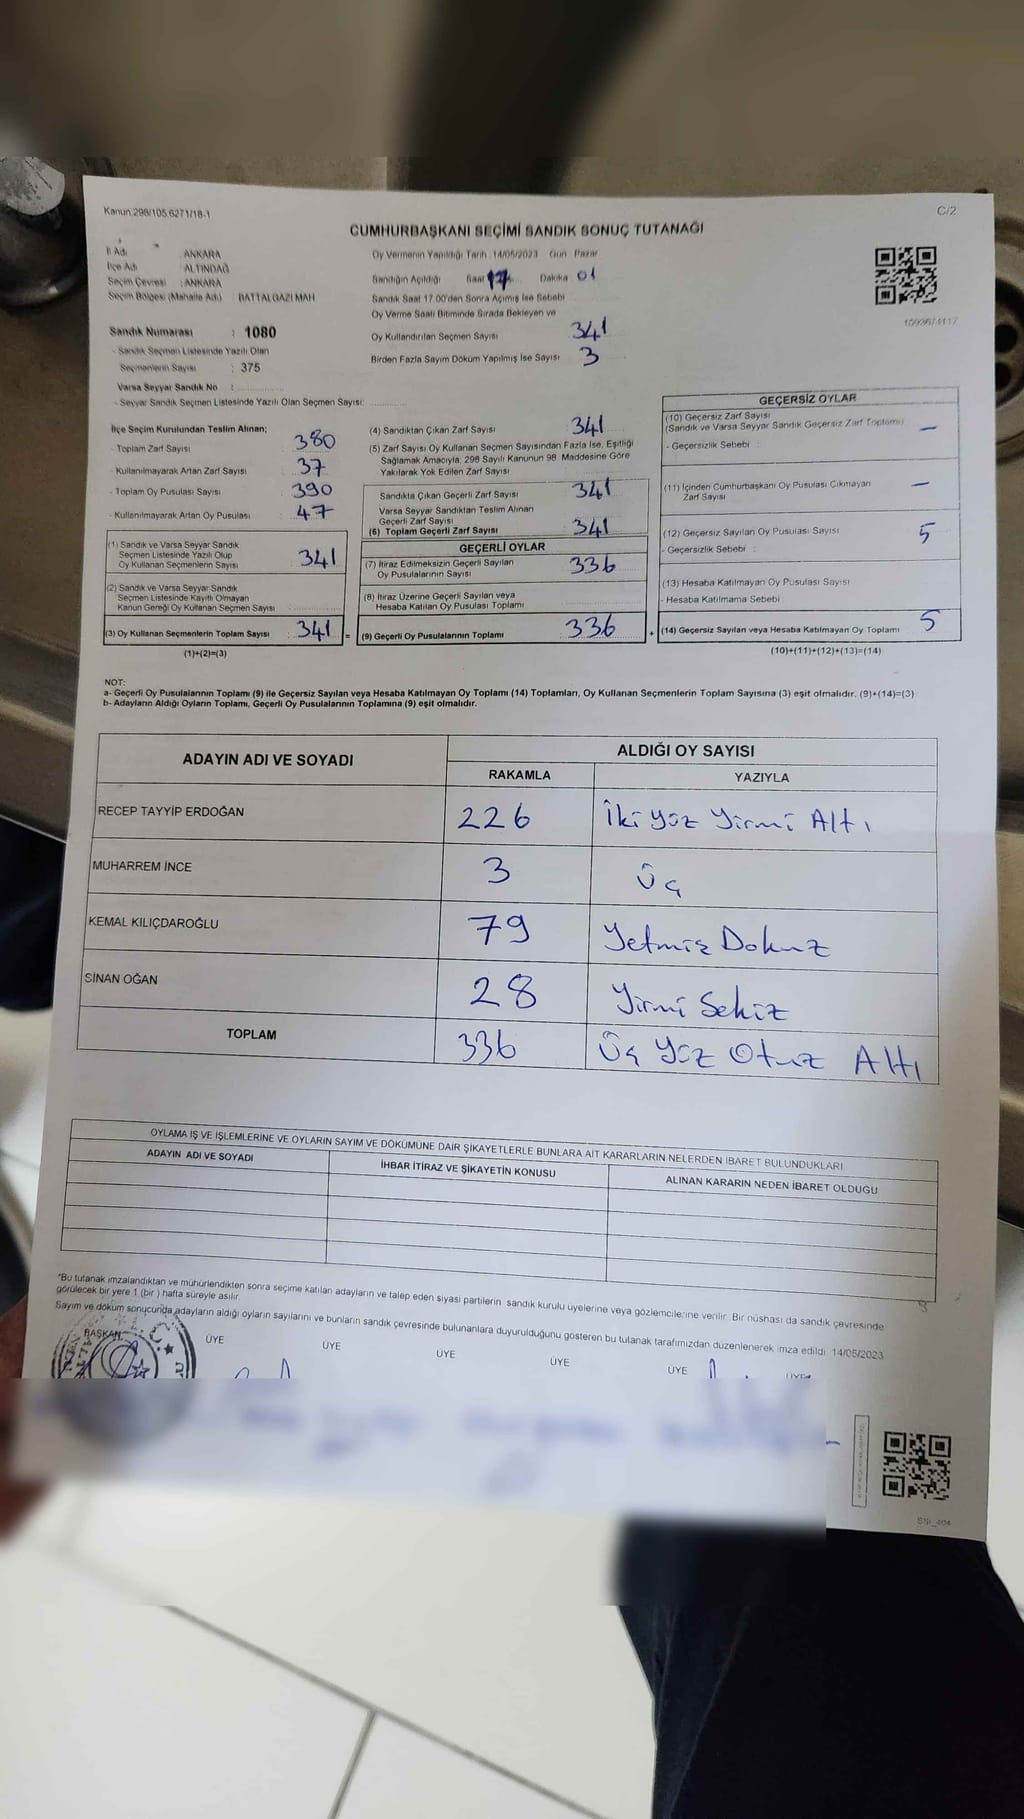 Kanun.298/105.6271/18-1
C/2
CUMHURBAŞKANI SEÇİMİ SANDIK SONUÇ TUTANAĞI
İl Adı : ANKARA
İlçe Adı : ALTINDAĞ
Seçim Çevresi : ANKARA
Seçim Bölgesi (Mahalle Adı) : BATTALGAZİ MAH
Sandık Numarası : 1080
- Sandık Seçmen Listesinde Yazılı Olan
Seçmenlerin Sayısı : 375
Varsa Seyyar Sandık No :
- Seyyar Sandık Seçmen Listesinde Yazılı Olan Seçmen Sayısı:
Oy Vermenin Yapıldığı Tarih :14/05/2023 Gün Pazar
Sandığın Açıldığı Saat 17 Dakika 01
Sandık Saat 17.00'den Sonra Açımış İse Sebebi
Oy Verme Saati Bitiminde Sırada Bekleyen ve
Oy Kullandırılan Seçmen Sayısı 341
Birden Fazla Sayım Döküm Yapılmış İse Sayısı 3
İlçe Seçim Kurulundan Teslim Alınan;
- Toplam Zarf Sayısı : 380
- Kullanılmayarak Artan Zarf Sayısı : 37
- Toplam Oy Pusulası Sayısı : 390
- Kullanılmayarak Artan Oy Pusulası : 47
(1) Sandık ve Varsa Seyyar Sandık
Seçmen Listesinde Yazılı Olup
Oy Kullanan Seçmenlerin Sayısı : 341
(2) Sandık ve Varsa Seyyar Sandık
Seçmen Listesinde Kayıtlı Olmayan
Kanun Gereği Oy Kullanan Seçmen Sayısı :
(3) Oy Kullanan Seçmenlerin Toplam Sayısı : 341 =
(1)+(2)=(3)
(4) Sandıktan Çıkan Zarf Sayısı : 341
(5) Zarf Sayısı Oy Kullanan Seçmen Sayısından Fazla İse, Eşitliği
Sağlamak Amacıyla, 298 Sayılı Kanunun 98. Maddesine Göre
Yakılarak Yok Edilen Zarf Sayısı
Sandıkta Çıkan Geçerli Zarf Sayısı : 341
Varsa Seyyar Sandıktan Teslim Alınan
Geçerli Zarf Sayısı
(6) Toplam Geçerli Zarf Sayısı : 341
GEÇERLİ OYLAR
(7) İtiraz Edilmeksizin Geçerli Sayılan
Oy Pusulalarının Sayısı : 336
(8) İtiraz Üzerine Geçerli Sayılan veya
Hesaba Katılan Oy Pusulası Toplamı
(9) Geçerli Oy Pusulalarının Toplamı : 336 +
GEÇERSİZ OYLAR
(10) Geçersiz Zarf Sayısı
(Sandık ve Varsa Seyyar Sandık Geçersiz Zarf Toplamı) —
- Geçersizlik Sebebi :
(11) İçinden Cumhurbaşkanı Oy Pusulası Çıkmayan
Zarf Sayısı —
(12) Geçersiz Sayılan Oy Pusulası Sayısı 5
- Geçersizlik Sebebi :
(13) Hesaba Katılmayan Oy Pusulası Sayısı
- Hesaba Katılmama Sebebi
(14) Geçersiz Sayılan veya Hesaba Katılmayan Oy Toplamı 5
(10)+(11)+(12)+(13)=(14)
NOT:
a- Geçerli Oy Pusulalarının Toplamı (9) ile Geçersiz Sayılan veya Hesaba Katılmayan Oy Toplamı (14) Toplamları, Oy Kullanan Seçmenlerin Toplam Sayısına (3) eşit olmalıdır. (9)+(14)=(3)
b- Adayların Aldığı Oyların Toplamı, Geçerli Oy Pusulalarının Toplamına (9) eşit olmalıdır.
ADAYIN ADI VE SOYADI
ALDIĞI OY SAYISI
RAKAMLA YAZIYLA
RECEP TAYYİP ERDOĞAN 226 İki yüz yirmi Altı
MUHARREM İNCE 3 Üç
KEMAL KILIÇDAROĞLU 79 Yetmiş Dokuz
SİNAN OĞAN 28 Yirmi Sekiz
TOPLAM 336 Üç Yüz Otuz Altı
OYLAMA İŞ VE İŞLEMLERİNE VE OYLARIN SAYIM VE DÖKÜMÜNE DAİR ŞİKAYETLERLE BUNLARA AİT KARARLARIN NELERDEN İBARET BULUNDUKLARI
ADAYIN ADI VE SOYADI İHBAR İTİRAZ VE ŞİKAYETİN KONUSU ALINAN KARARIN NEDEN İBARET OLDUĞU
*Bu tutanak imzalandıktan ve mühürlendikten sonra seçime katılan adayların ve talep eden siyasi partilerin sandık kurulu üyelerine veya gözlemcilerine verilir. Bir nüshası da sandık çevresinde
görülecek bir yere 1 (bir ) hafta süreyle asılır.
Sayım ve döküm sonucunda adayların aldığı oyların sayılarını ve bunların sandık çevresinde bulunanlara duyurulduğunu gösteren bu tutanak tarafımızdan düzenlenerek imza edildi 14/05/2023
BAŞKAN ÜYE ÜYE ÜYE ÜYE ÜYE ÜYE